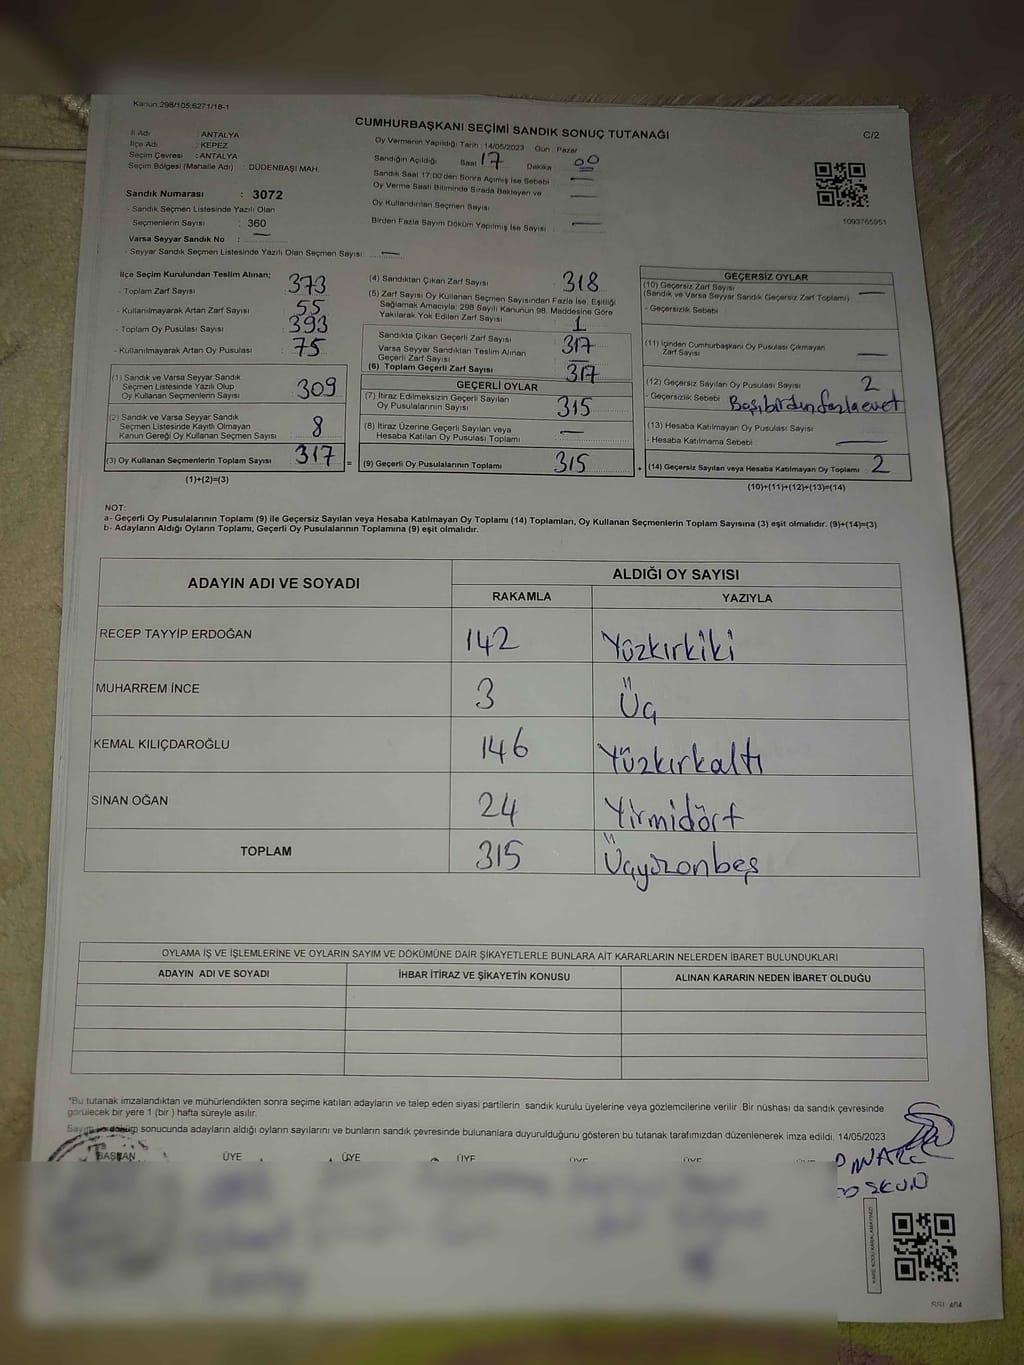 Kanun:298/105;6271/18-1
CUMHURBAŞKANI SEÇİMİ SANDIK SONUÇ TUTANAĞI
C/2
İl Adı : ANTALYA
İlçe Adı : KEPEZ
Seçim Çevresi : ANTALYA
Seçim Bölgesi (Mahalle Adı) : DÜDENBAŞI MAH.
Sandık Numarası : 3072
- Sandık Seçmen Listesinde Yazılı Olan
Seçmenlerin Sayısı : 360
Varsa Seyyar Sandık No : —
- Seyyar Sandık Seçmen Listesinde Yazılı Olan Seçmen Sayısı : —
Oy Vermenin Yapıldığı Tarih : 14/05/2023 Gün : Pazar
Sandığın Açıldığı Saat 17 Dakika 00
Sandık Saat 17:00'den Sonra Açılmış İse Sebebi —
Oy Verme Saati Bitiminde Sırada Bekleyen ve —
Oy Kullandırılan Seçmen Sayısı
Birden Fazla Sayım Döküm Yapılmış İse Sayısı : —
1093765951
İlçe Seçim Kurulundan Teslim Alınan;
- Toplam Zarf Sayısı : 373
- Kullanılmayarak Artan Zarf Sayısı : 55
- Toplam Oy Pusulası Sayısı : 393
- Kullanılmayarak Artan Oy Pusulası : 75
(1) Sandık ve Varsa Seyyar Sandık
Seçmen Listesinde Yazılı Olup
Oy Kullanan Seçmenlerin Sayısı : 309
(2) Sandık ve Varsa Seyyar Sandık
Seçmen Listesinde Kayıtlı Olmayan
Kanun Gereği Oy Kullanan Seçmen Sayısı : 8
(3) Oy Kullanan Seçmenlerin Toplam Sayısı : 317
(1)+(2)=(3)
(4) Sandıktan Çıkan Zarf Sayısı : 318
(5) Zarf Sayısı Oy Kullanan Seçmen Sayısından Fazla İse, Eşitliği
Sağlamak Amacıyla; 298 Sayılı Kanunun 98. Maddesine Göre
Yakılarak Yok Edilen Zarf Sayısı : 1
Sandıkta Çıkan Geçerli Zarf Sayısı : 317
Varsa Seyyar Sandıktan Teslim Alınan
Geçerli Zarf Sayısı : —
(6) Toplam Geçerli Zarf Sayısı : 317
GEÇERLİ OYLAR
(7) İtiraz Edilmeksizin Geçerli Sayılan
Oy Pusulalarının Sayısı : 315
(8) İtiraz Üzerine Geçerli Sayılan veya
Hesaba Katılan Oy Pusulası Toplamı : —
= (9) Geçerli Oy Pusulalarının Toplamı : 315
GEÇERSİZ OYLAR
(10) Geçersiz Zarf Sayısı
(Sandık ve Varsa Seyyar Sandık Geçersiz Zarf Toplamı) : —
- Geçersizlik Sebebi :
(11) İçinden Cumhurbaşkanı Oy Pusulası Çıkmayan
Zarf Sayısı : —
(12) Geçersiz Sayılan Oy Pusulası Sayısı : 2
- Geçersizlik Sebebi : Başıbirdenfazlaevet
(13) Hesaba Katılmayan Oy Pusulası Sayısı :
- Hesaba Katılmama Sebebi : —
+ (14) Geçersiz Sayılan veya Hesaba Katılmayan Oy Toplamı : 2
(10)+(11)+(12)+(13)=(14)
NOT:
a- Geçerli Oy Pusulalarının Toplamı (9) ile Geçersiz Sayılan veya Hesaba Katılmayan Oy Toplamı (14) Toplamları, Oy Kullanan Seçmenlerin Toplam Sayısına (3) eşit olmalıdır. (9)+(14)=(3)
b- Adayların Aldığı Oyların Toplamı, Geçerli Oy Pusulalarının Toplamına (9) eşit olmalıdır.
ADAYIN ADI VE SOYADI
ALDIĞI OY SAYISI
RAKAMLA YAZIYLA
RECEP TAYYİP ERDOĞAN 142 Yüzkırkiki
MUHARREM İNCE 3 Üç
KEMAL KILIÇDAROĞLU 146 Yüzkırkaltı
SİNAN OĞAN 24 Yirmidört
TOPLAM 315 Üçyüzonbeş
OYLAMA İŞ VE İŞLEMLERİNE VE OYLARIN SAYIM VE DÖKÜMÜNE DAİR ŞİKAYETLERLE BUNLARA AİT KARARLARIN NELERDEN İBARET BULUNDUKLARI
ADAYIN ADI VE SOYADI İHBAR İTİRAZ VE ŞİKAYETİN KONUSU ALINAN KARARIN NEDEN İBARET OLDUĞU
*Bu tutanak imzalandıktan ve mühürlendikten sonra seçime katılan adayların ve talep eden siyasi partilerin sandık kurulu üyelerine veya gözlemcilerine verilir .Bir nüshası da sandık çevresinde
görülecek bir yere 1 (bir ) hafta süreyle asılır.
Sayım ve döküm sonucunda adayların aldığı oyların sayılarını ve bunların sandık çevresinde bulunanlara duyurulduğunu gösteren bu tutanak tarafımızdan düzenlenerek imza edildi. 14/05/2023
BAŞKAN ÜYE ÜYE ÜYE ÜYE ÜYE